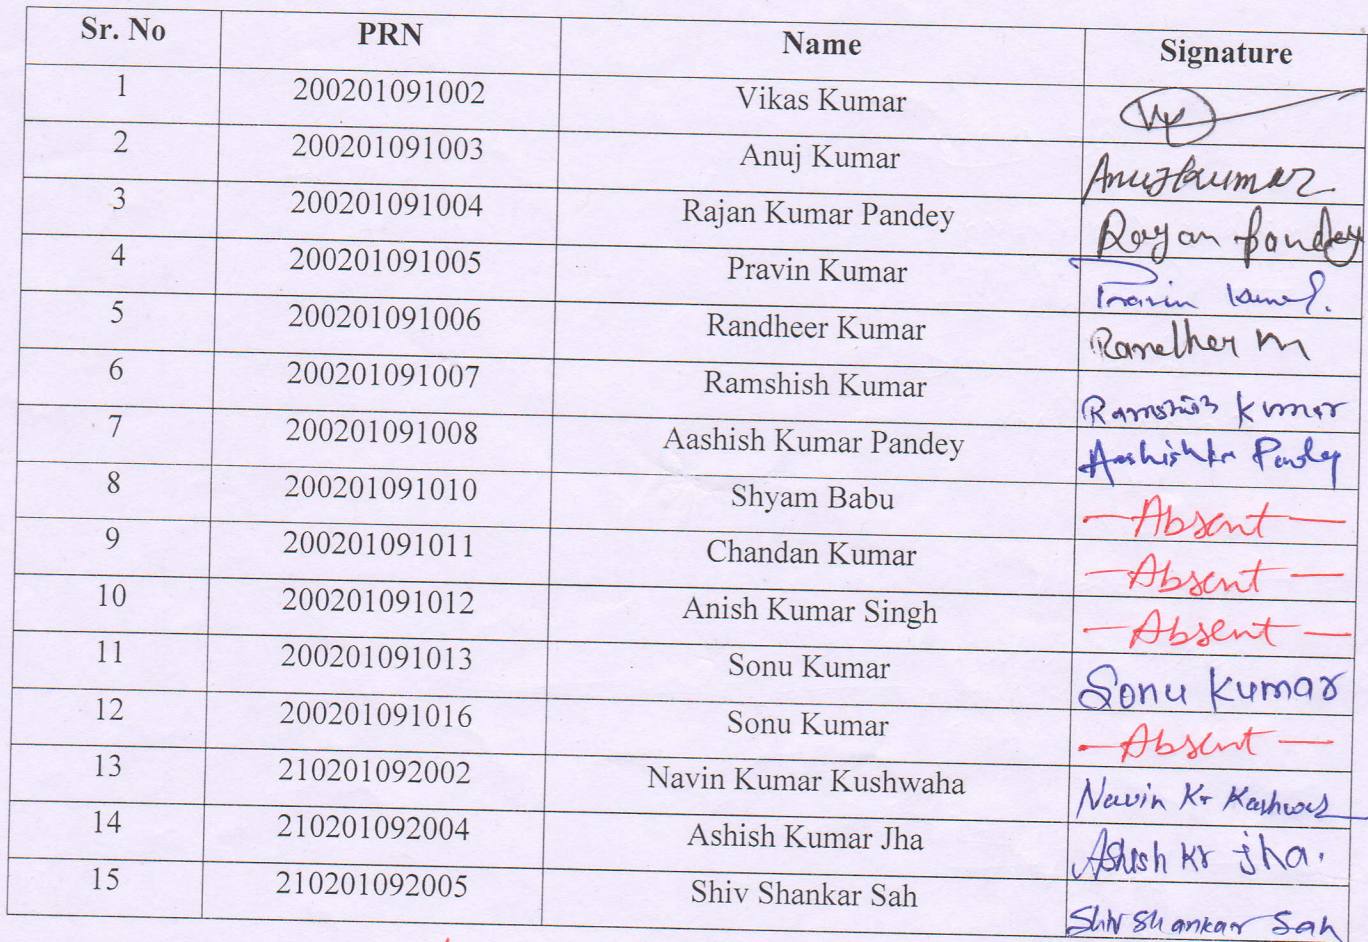 Sr. No PRN Name Signature
1 200201091002 Vikas Kumar
2 200201091003 Anuj Kumar Anuj Kumar
3 200201091004 Rajan Kumar Pandey Rajan Pandey
4 200201091005 Pravin Kumar Pravin Kumar.
5 200201091006 Randheer Kumar
6 200201091007 Ramshish Kumar Ramshish Kumar
7 200201091008 Aashish Kumar Pandey Aashish Kr Pandey
8 200201091010 Shyam Babu — Absent —
9 200201091011 Chandan Kumar — Absent —
10 200201091012 Anish Kumar Singh — Absent —
11 200201091013 Sonu Kumar Sonu Kumar
12 200201091016 Sonu Kumar — Absent —
13 210201092002 Navin Kumar Kushwaha Navin Kr
14 210201092004 Ashish Kumar Jha Ashish Kr jha.
15 210201092005 Shiv Shankar Sah Shiv Shankar Sah